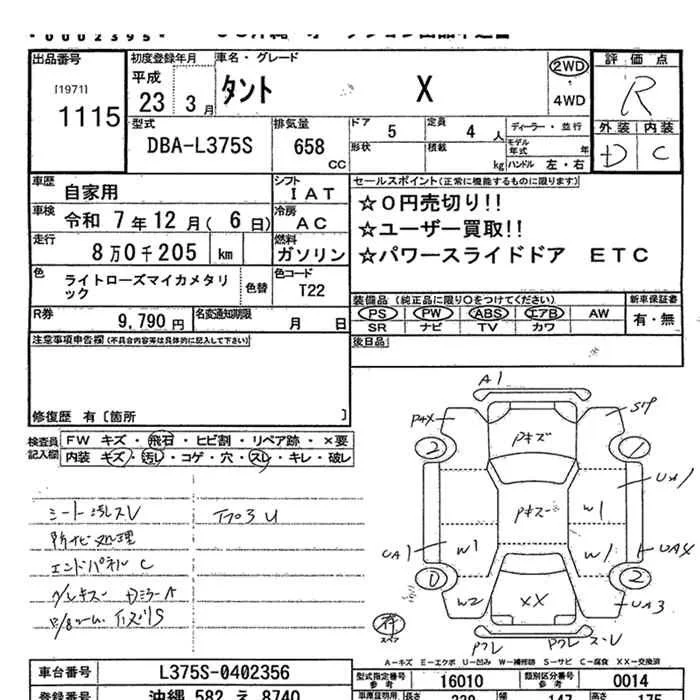 *0002395*
出品番号
[1971]
1115
初度登録年月
平成
23 3月
車名・グレード
タント X
2WD
・
4WD
評価点
R
外装 内装
D C
型式
DBA-L375S
排気量
658
CC
ドア 5
定員 4 人
形状
積載 kg
ディーラー・並行
モデル年式 年
ハンドル 左・右
車歴 自家用
車検 令和 7年12月( 6日)
走行 8万0千205 km
色 ライトローズマイカメタリック
色替
シフト IAT
冷房 AC
燃料 ガソリン
色コード T22
R券 9,790円
名変通知期限 月 日
セールスポイント(正常に機能するものに限ります)
☆0円売切り!!
☆ユーザー買取!!
☆パワースライドドア ETC
装備品(純正品に限り○をつけてください)
PS PW ABS エアB AW
SR ナビ TV カワ
新車保証書
有・無
後日品
注意事項申告欄(不具合内容等は具体的に記入して下さい)
修復歴 有 [箇所 ]
検査員記入欄
FW キズ・飛石・ヒビ割・リペア跡・×要
内装 キズ・汚レ・コゲ・穴・スレ・キレ・破レ
シート汚レスレ
エンドパネル C
A1
Pキズ
2
1
W1
W1
UA1
W1
UA4
0
2
W2
XX
UA3
スペア
A-キズ E-エクボ U-凹み W-補修跡 S-サビ C-腐食 XX-交換済
車台番号 L375S-0402356
型式指定番号 参考 16010
類別区分番号 参考 0014
登録番号 沖縄 582 え 8740